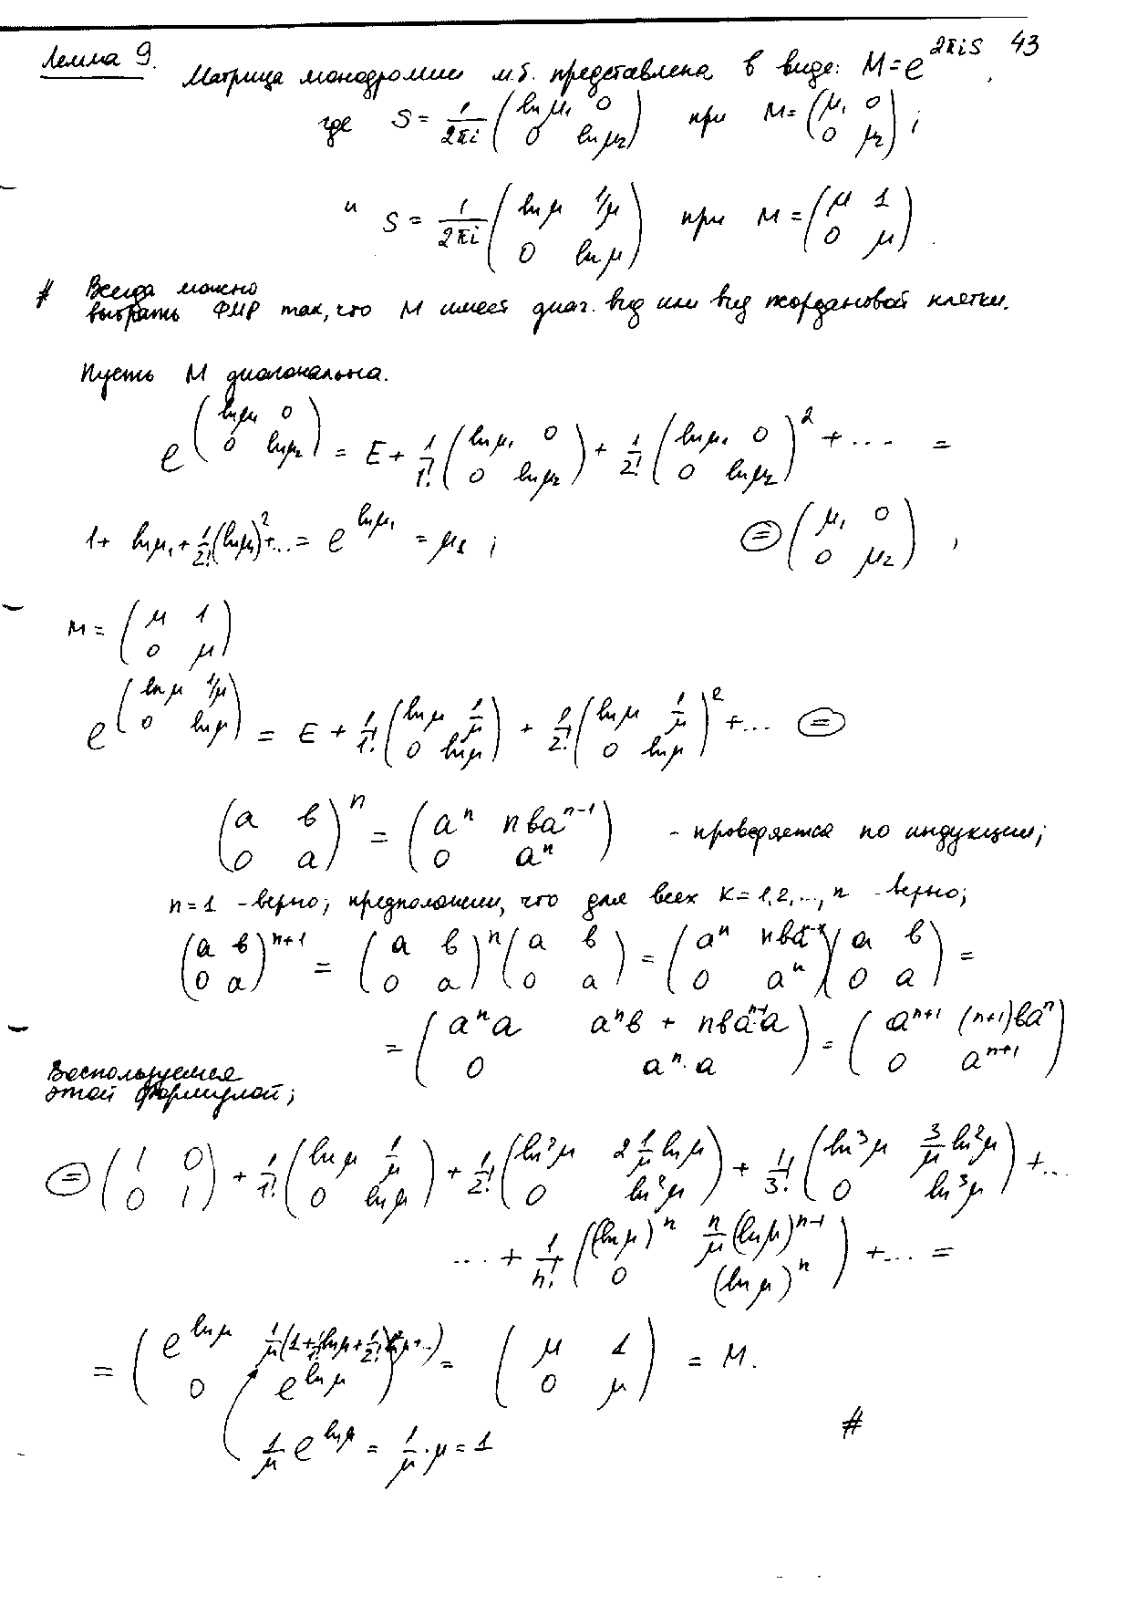 43
Лемма 9. Матрица монодромии м.б. представлена в виде: M = e^{2πiS},
где S = \frac{1}{2πi} \begin{pmatrix} ln μ₁ & 0 \\ 0 & ln μ₂ \end{pmatrix} при M = \begin{pmatrix} μ₁ & 0 \\ 0 & μ₂ \end{pmatrix};
и S = \frac{1}{2πi} \begin{pmatrix} ln μ & 1/μ \\ 0 & ln μ \end{pmatrix} при M = \begin{pmatrix} μ & 1 \\ 0 & μ \end{pmatrix}.
# Всегда можно
выбрать ФМР так, что M имеет диаг. вид или вид жордановой клетки.
Пусть M диагональна.
e^{\begin{pmatrix} ln μ₁ & 0 \\ 0 & ln μ₂ \end{pmatrix}} = E + \frac{1}{1!} \begin{pmatrix} ln μ₁ & 0 \\ 0 & ln μ₂ \end{pmatrix} + \frac{1}{2!} \begin{pmatrix} ln μ₁ & 0 \\ 0 & ln μ₂ \end{pmatrix}^2 + ... =
1 + ln μ₁ + \frac{1}{2!}(ln μ₁)^2 + ... = e^{ln μ₁} = μ₁; (=) \begin{pmatrix} μ₁ & 0 \\ 0 & μ₂ \end{pmatrix},
M = \begin{pmatrix} μ & 1 \\ 0 & μ \end{pmatrix}
e^{\begin{pmatrix} ln μ & 1/μ \\ 0 & ln μ \end{pmatrix}} = E + \frac{1}{1!} \begin{pmatrix} ln μ & \frac{1}{μ} \\ 0 & ln μ \end{pmatrix} + \frac{1}{2!} \begin{pmatrix} ln μ & \frac{1}{μ} \\ 0 & ln μ \end{pmatrix}^2 + ... (=)
\begin{pmatrix} a & в \\ 0 & a \end{pmatrix}^n = \begin{pmatrix} a^n & nвa^{n-1} \\ 0 & a^n \end{pmatrix} - проверяется по индукции;
n = 1 - верно; предположим, что для всех k = 1, 2, ..., n - верно;
\begin{pmatrix} a & в \\ 0 & a \end{pmatrix}^{n+1} = \begin{pmatrix} a & в \\ 0 & a \end{pmatrix}^n \begin{pmatrix} a & в \\ 0 & a \end{pmatrix} = \begin{pmatrix} a^n & nвa^{n-1} \\ 0 & a^n \end{pmatrix} \begin{pmatrix} a & в \\ 0 & a \end{pmatrix} =
= \begin{pmatrix} a^n a & a^n в + nвa^{n-1}·a \\ 0 & a^n·a \end{pmatrix} = \begin{pmatrix} a^{n+1} & (n+1)вa^n \\ 0 & a^{n+1} \end{pmatrix}
Воспользуемся
этой формулой;
(=) \begin{pmatrix} 1 & 0 \\ 0 & 1 \end{pmatrix} + \frac{1}{1!} \begin{pmatrix} ln μ & \frac{1}{μ} \\ 0 & ln μ \end{pmatrix} + \frac{1}{2!} \begin{pmatrix} ln^2 μ & 2\frac{1}{μ} ln μ \\ 0 & ln^2 μ \end{pmatrix} + \frac{1}{3!} \begin{pmatrix} ln^3 μ & \frac{3}{μ} ln^2 μ \\ 0 & ln^3 μ \end{pmatrix} + ...
... + \frac{1}{n!} \begin{pmatrix} (ln μ)^n & \frac{n}{μ}(ln μ)^{n-1} \\ 0 & (ln μ)^n \end{pmatrix} + ... =
= \begin{pmatrix} e^{ln μ} & \frac{1}{μ}(1 + \frac{1}{1!} ln μ + \frac{1}{2!} ln^2 μ + ...) \\ 0 & e^{ln μ} \end{pmatrix} = \begin{pmatrix} μ & 1 \\ 0 & μ \end{pmatrix} = M.
\frac{1}{μ} e^{ln μ} = \frac{1}{μ}·μ = 1
#